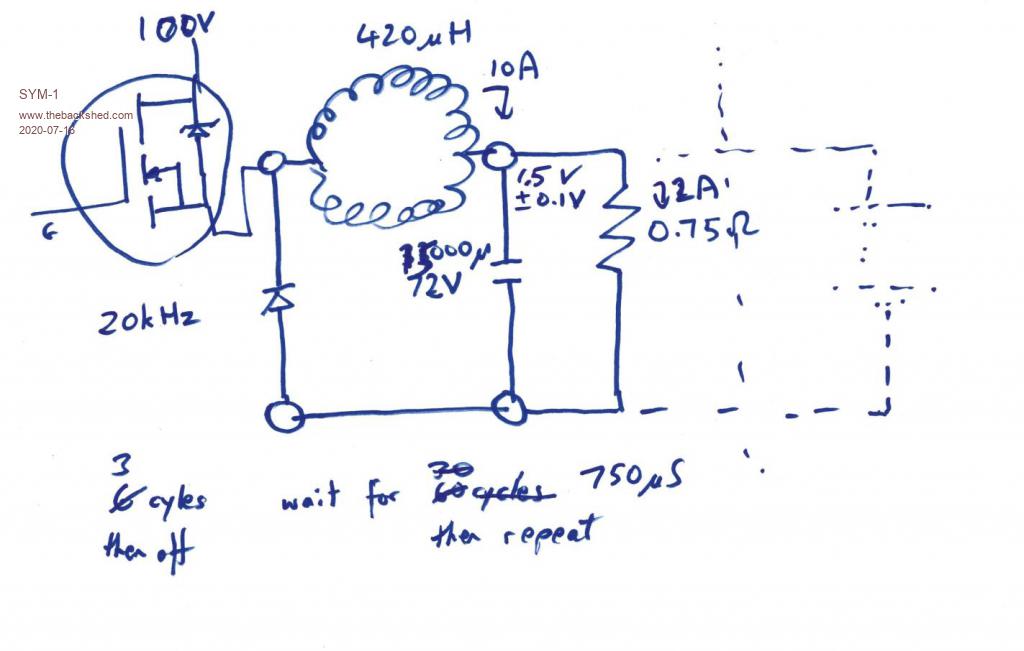 100V
420μH
10A
SYM-1
www.thebackshed.com
2020-07-16
1.5V
±0.1V
2A
0.75Ω
G
000μ
72V
20kHz
3
6 cyles
then off
wait for
30
60 cycles
750μS
then repeat